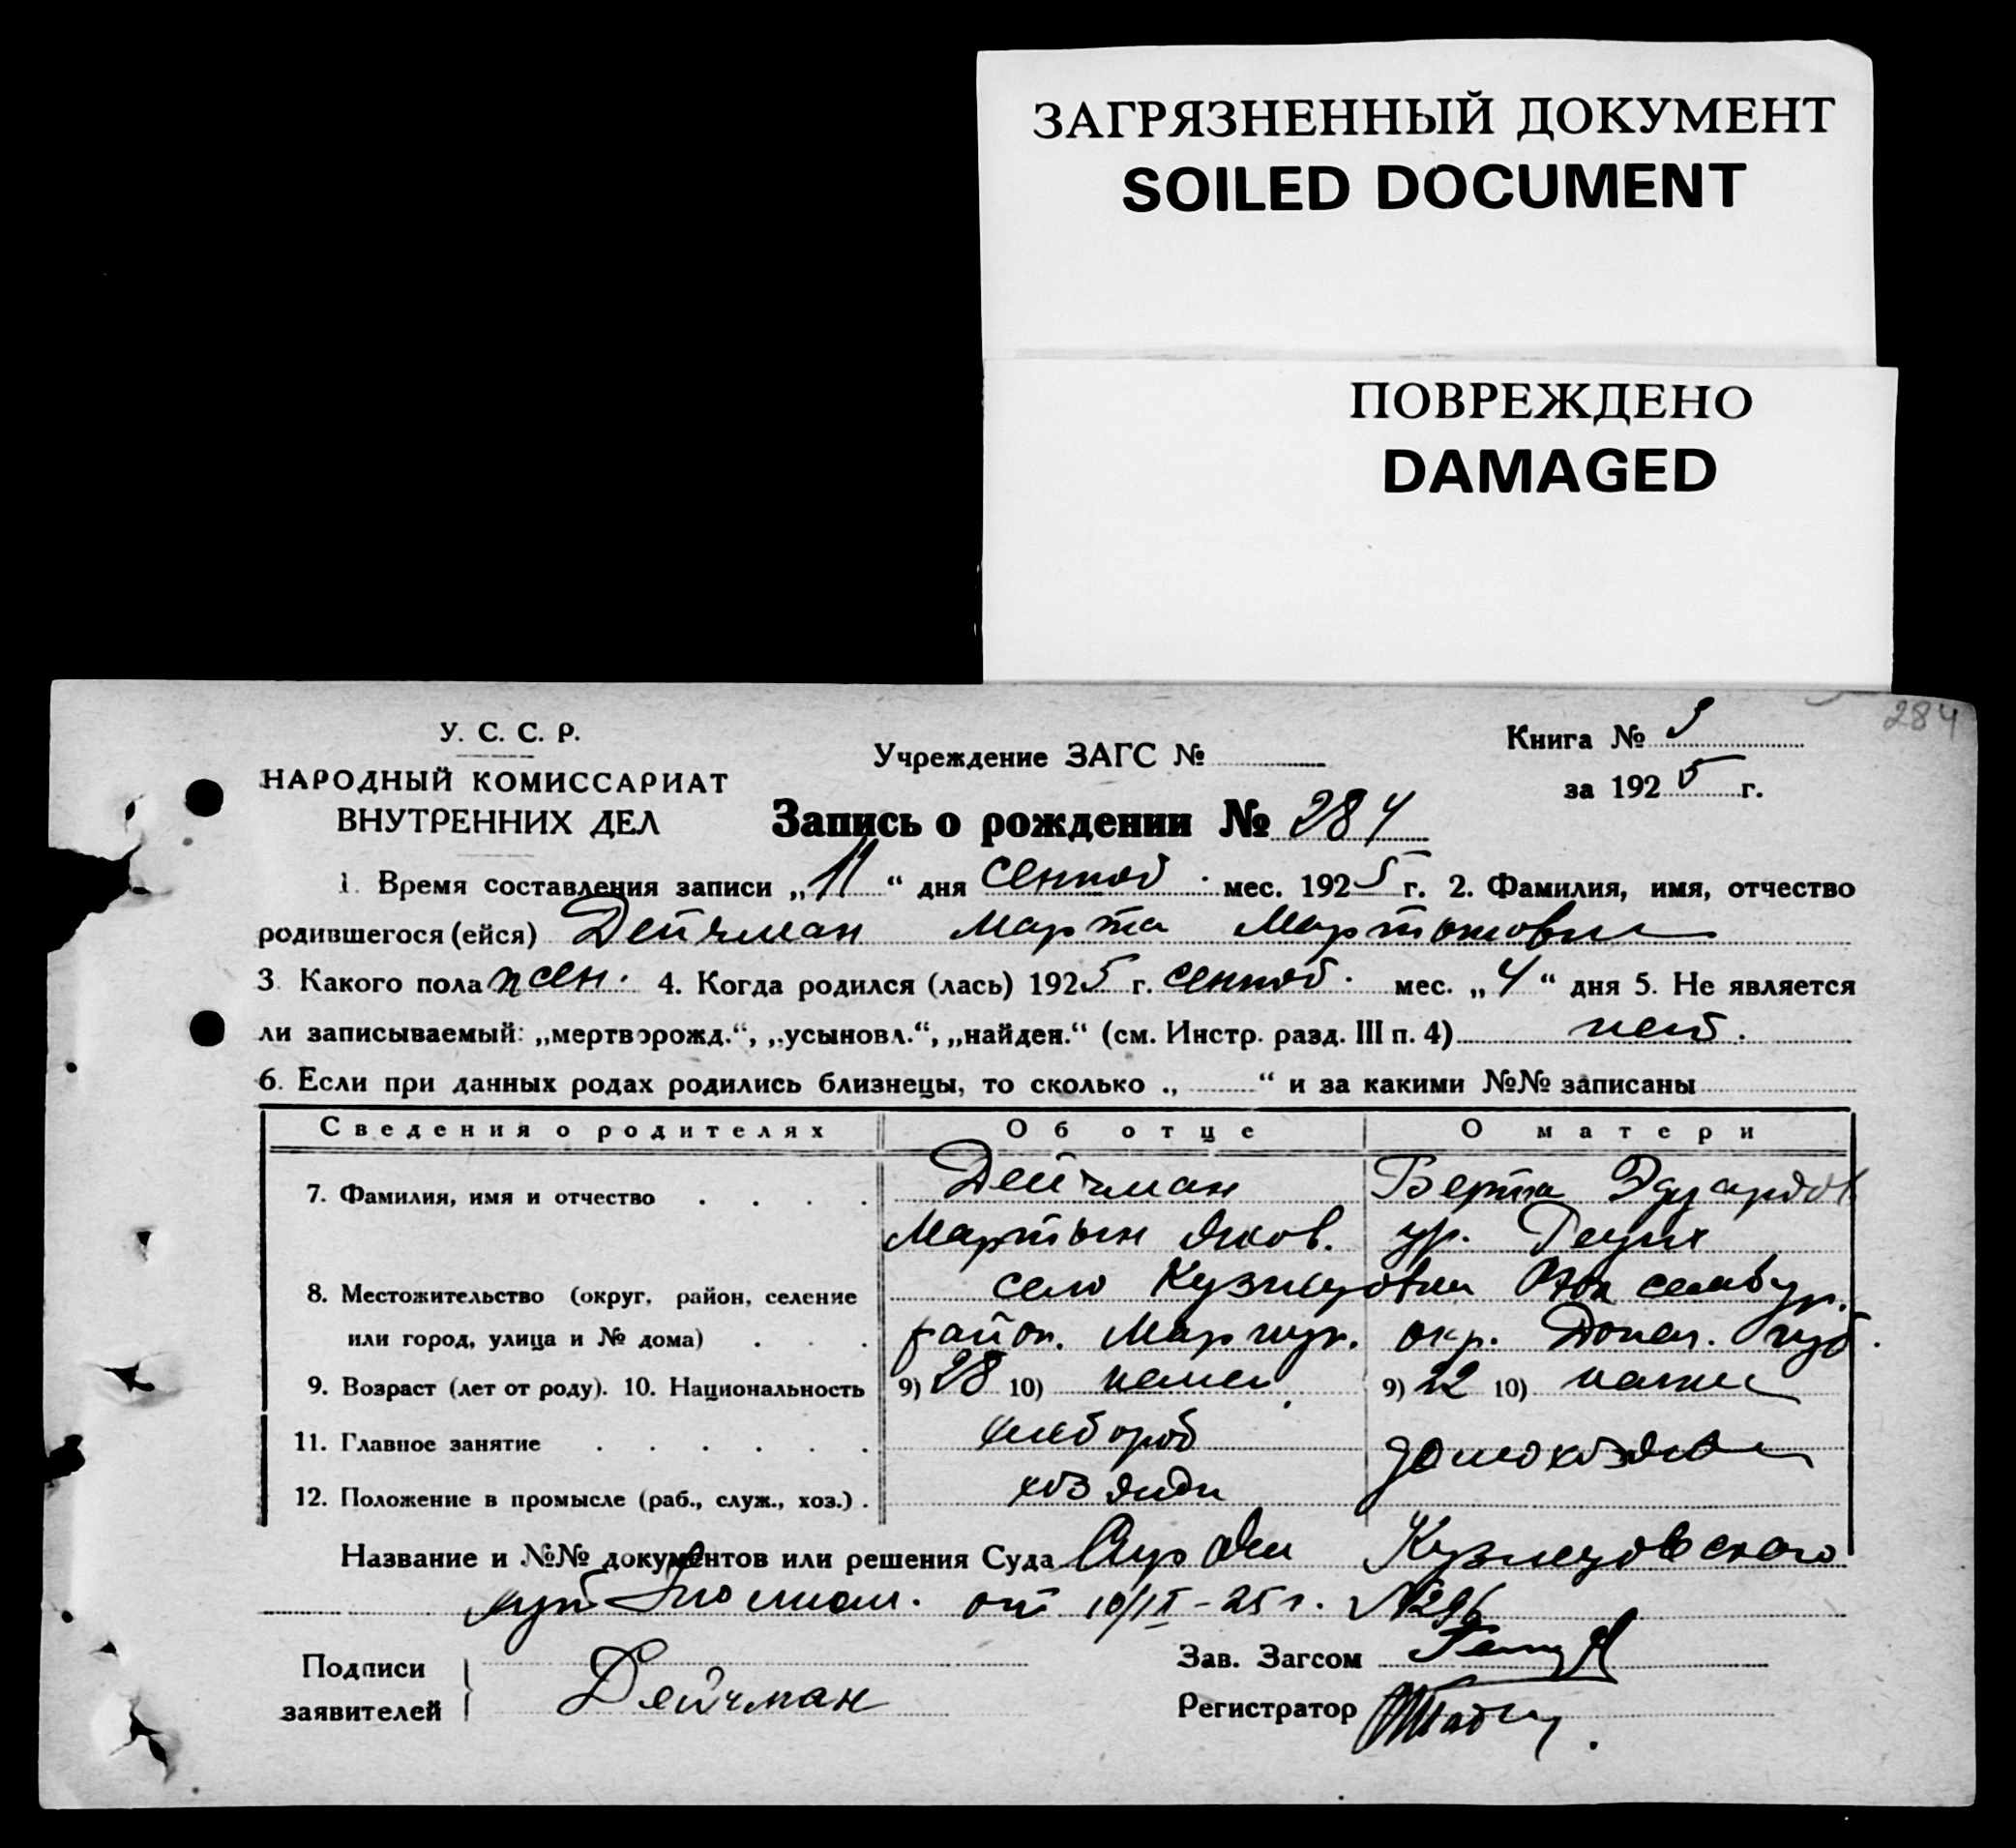 ЗАГРЯЗНЕННЫЙ ДОКУМЕНТ
SOILED DOCUMENT
ПОВРЕЖДЕНО
DAMAGED
284
У. С. С. Р.
НАРОДНЫЙ КОМИССАРИАТ
ВНУТРЕННИХ ДЕЛ
Учреждение ЗАГС №
Книга № 3
за 1925 г.
Запись о рождении № 284
1. Время составления записи „11“ дня сентяб. мес. 1925 г. 2. Фамилия, имя, отчество
родившегося (ейся) Дейчман Марта Мартыновна
3. Какого пола жен. 4. Когда родился (лась) 1925 г. сентяб. мес. „4“ дня 5. Не является
ли записываемый: „мертворожд.“, „усыновл.“, „найден.“ (см. Инстр. разд. III п. 4) нет.
6. Если при данных родах родились близнецы, то сколько „ “ и за какими №№ записаны
Сведения о родителях Об отце О матери
7. Фамилия, имя и отчество Дейчман Берта Эдуардов
Мартын Яков. ур.
8. Местожительство (округ, район, селение село Кузнецовка
или город, улица и № дома) район. Мариуп. окр. Донец. губ.
9. Возраст (лет от роду). 10. Национальность 9) 28 10) немец 9) 22 10) немка
11. Главное занятие хлебороб домохозяйка
12. Положение в промысле (раб., служ., хоз.) хозяин
Название и №№ документов или решения Суда Кузнецовского
от 10/IX-25 г. №296
Подписи
заявителей Дейчман
Зав. Загсом
Регистратор